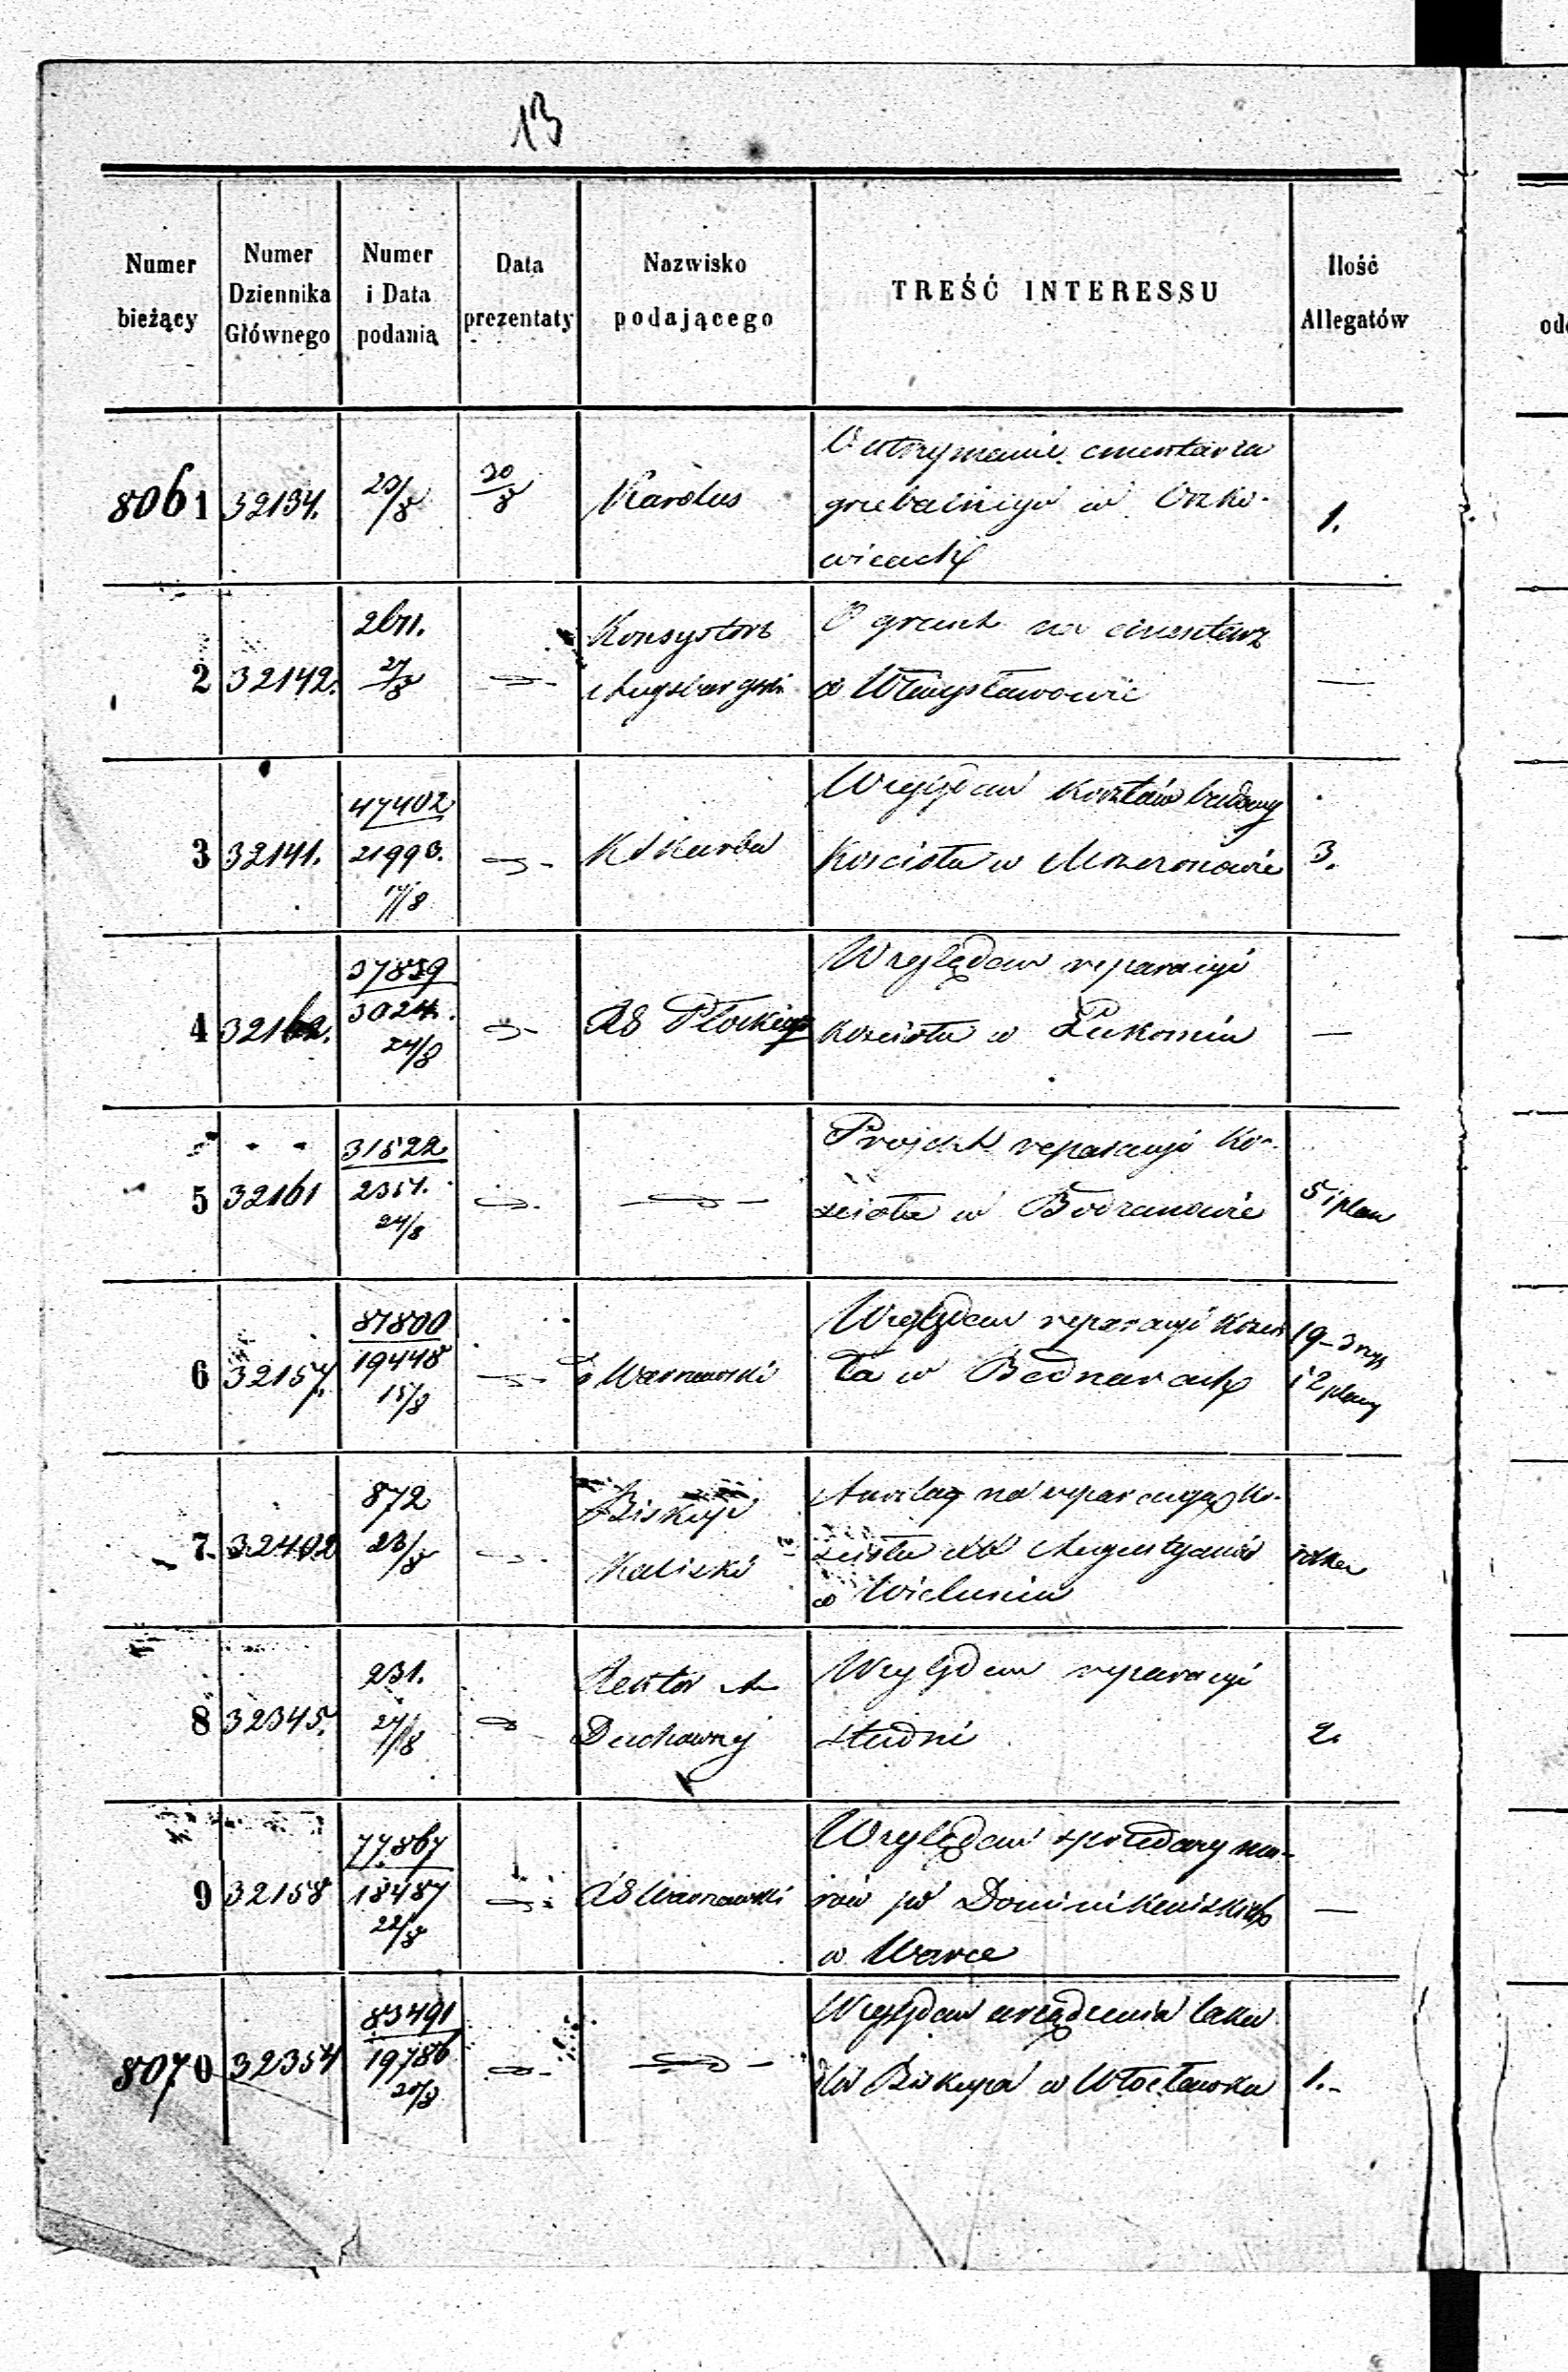 13
Numer bieżący
Numer Dziennika Głównego
Numer i Data podania
Data prezentaty
Nazwisko podającego
TREŚĆ INTERESSU
Ilość Allegatów
8061 32134. 20/8 30/8 Karolus
O utrzymanie cmentarza
grzebalnego w
wicach
1.
2 32142. 27/8
Konsystorz
Augsburgski
O grunt na cmentarz
w Władysławowie
—
3 32141. 47402
21993.
17/8
K Skarbu
Względem kosztów budowy
Kościoła w
3.
4 37859
3024.
24/8
RG Płockiego
Względem reparacyi
kościoła w Łukomiu
—
5 32161 31522
2351.
24/8
Projekt reparacyi Ko-
ścioła w Bodzanowie
5 i plan
6 32157. 87800
19448
15/8
Warszawski
Względem reparacyi kości
ła w Bednarach
19 - 3
i 2 plany
7. 32402 872
23/8
Biskup
Kaliski
Anszlag na reparacyą ko-
ścioła XX Augustyanów
w Wieluniu
8 32345. 231.
24/8
Rektor A
Duchownej
Względem reparacyi
studni
2.
9 32158 77867
18487
22/8
RG Warszawski
Względem sprzedaży mu-
rów po Dominikańskich
w Warce
—
8070 32354 83491
19786
20/8
Względem urządzenia
dla Biskupa w Włocławku
1.-